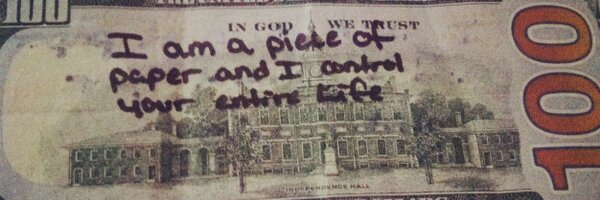 100
IN GOD WE TRUST
I am a piece of
paper and I control
your entire life
INDEPENDENCE HALL
100